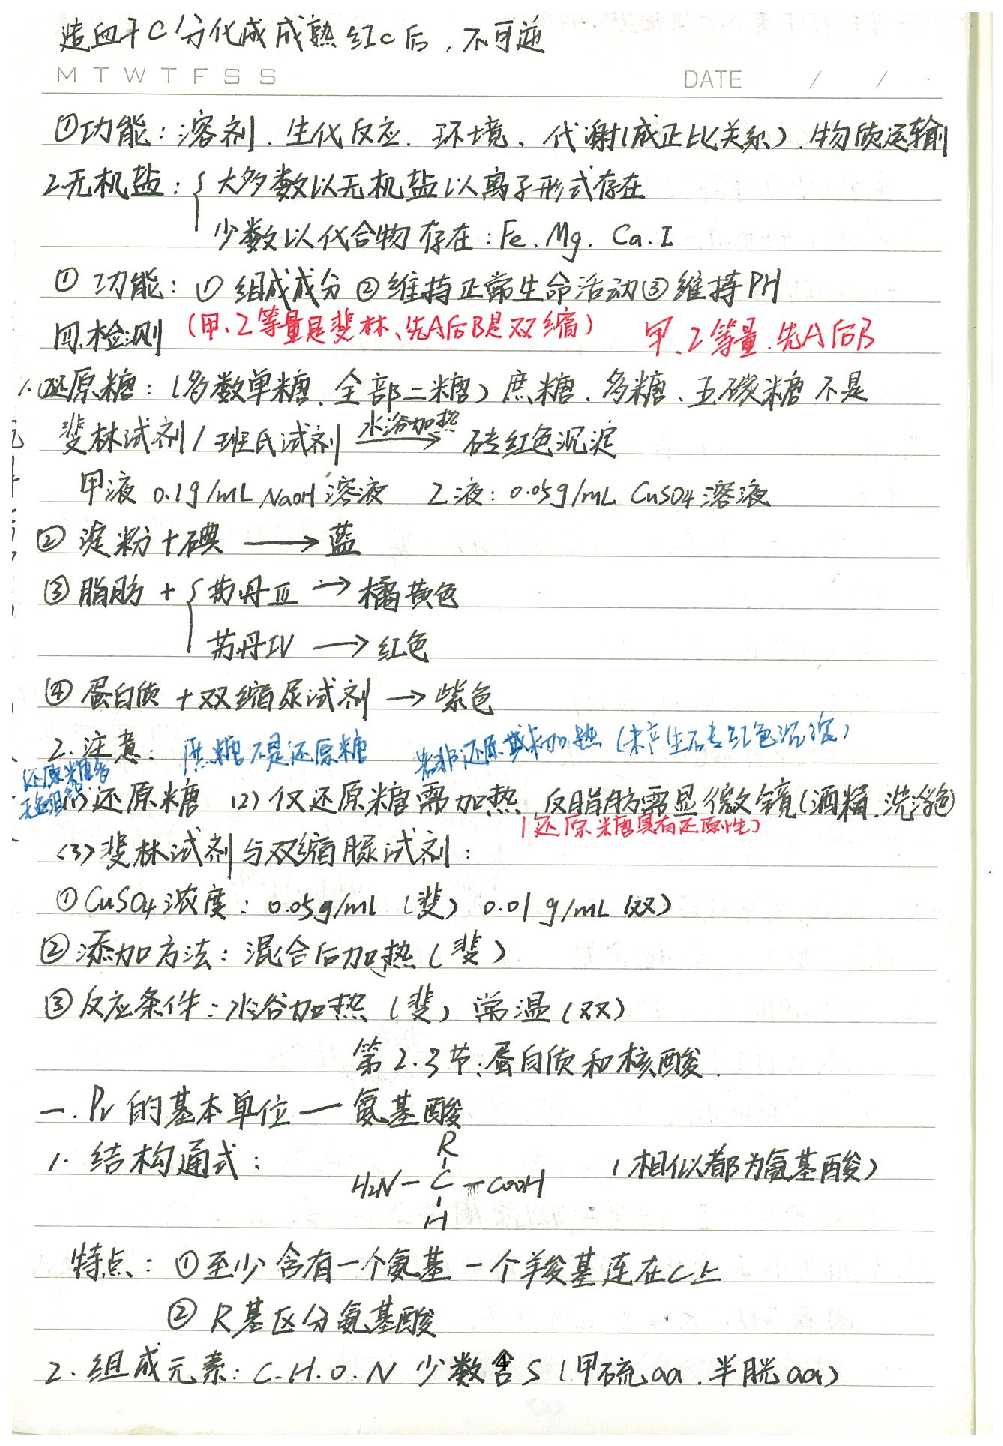 造血干C分化成成熟红C后，不可逆
M T W T F S S DATE / /
①功能：溶剂、生化反应、环境、代谢（成正比关系）、物质运输
2.无机盐：{大多数以无机盐以离子形式存在
少数以化合物存在：Fe、Mg、Ca、I
①功能：①组成成分②维持正常生命活动③维持PH
（甲、乙等量是斐林、先A后B是双缩） 甲、乙等量、先A后B
四.检测
1.①还原糖：（多数单糖、全部二糖）蔗糖、多糖、五碳糖不是
斐林试剂/班氏试剂 水浴加热→ 砖红色沉淀
甲液 0.1g/mL NaOH溶液 乙液：0.05g/mL CuSO4溶液
②淀粉+碘→蓝
③脂肪+{苏丹Ⅲ→橘黄色
苏丹IV→红色
④蛋白质+双缩尿试剂→紫色
2.注意： 蔗糖不是还原糖 若非还原或未加热（未产生砖红色沉淀）
还原糖
(1)还原糖 (2)仅还原糖需加热、仅脂肪需显微镜（酒精、洗浮色）
（还原糖具有还原性）
(3)斐林试剂与双缩脲试剂：
①CuSO4浓度：0.05g/ml（斐） 0.01g/mL（双）
②添加方法：混合后加热（斐）
③反应条件：水浴加热（斐）常温（双）
第2.3节：蛋白质和核酸.
一.Pr的基本单位—氨基酸
R
1.结构通式： H2N-C-COOH （相似都为氨基酸）
H
特点：①至少含有一个氨基 一个羧基连在C上
②R基区分氨基酸
2.组成元素：C.H.O.N 少数含S（甲硫aa、半胱aa）
4